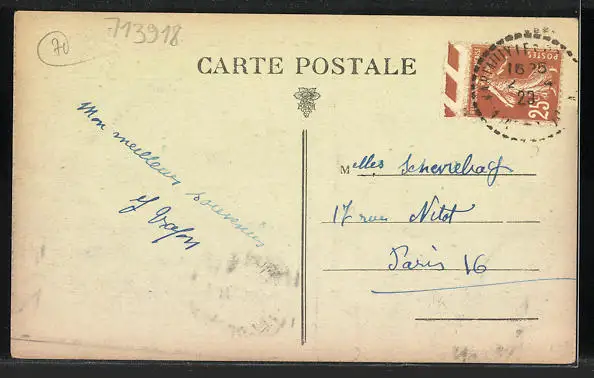 70
713918
CARTE POSTALE
POSTES
25
16 25
23
Mon meilleur souvenir
Melles
17 rue Nitot
Paris 16